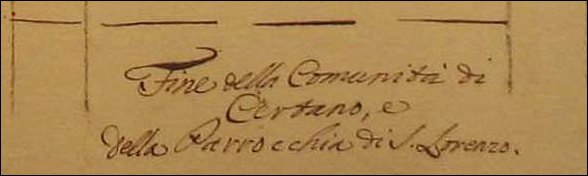 Fine della Comunità di
Certano, e
della Parrocchia di S. Lorenzo.